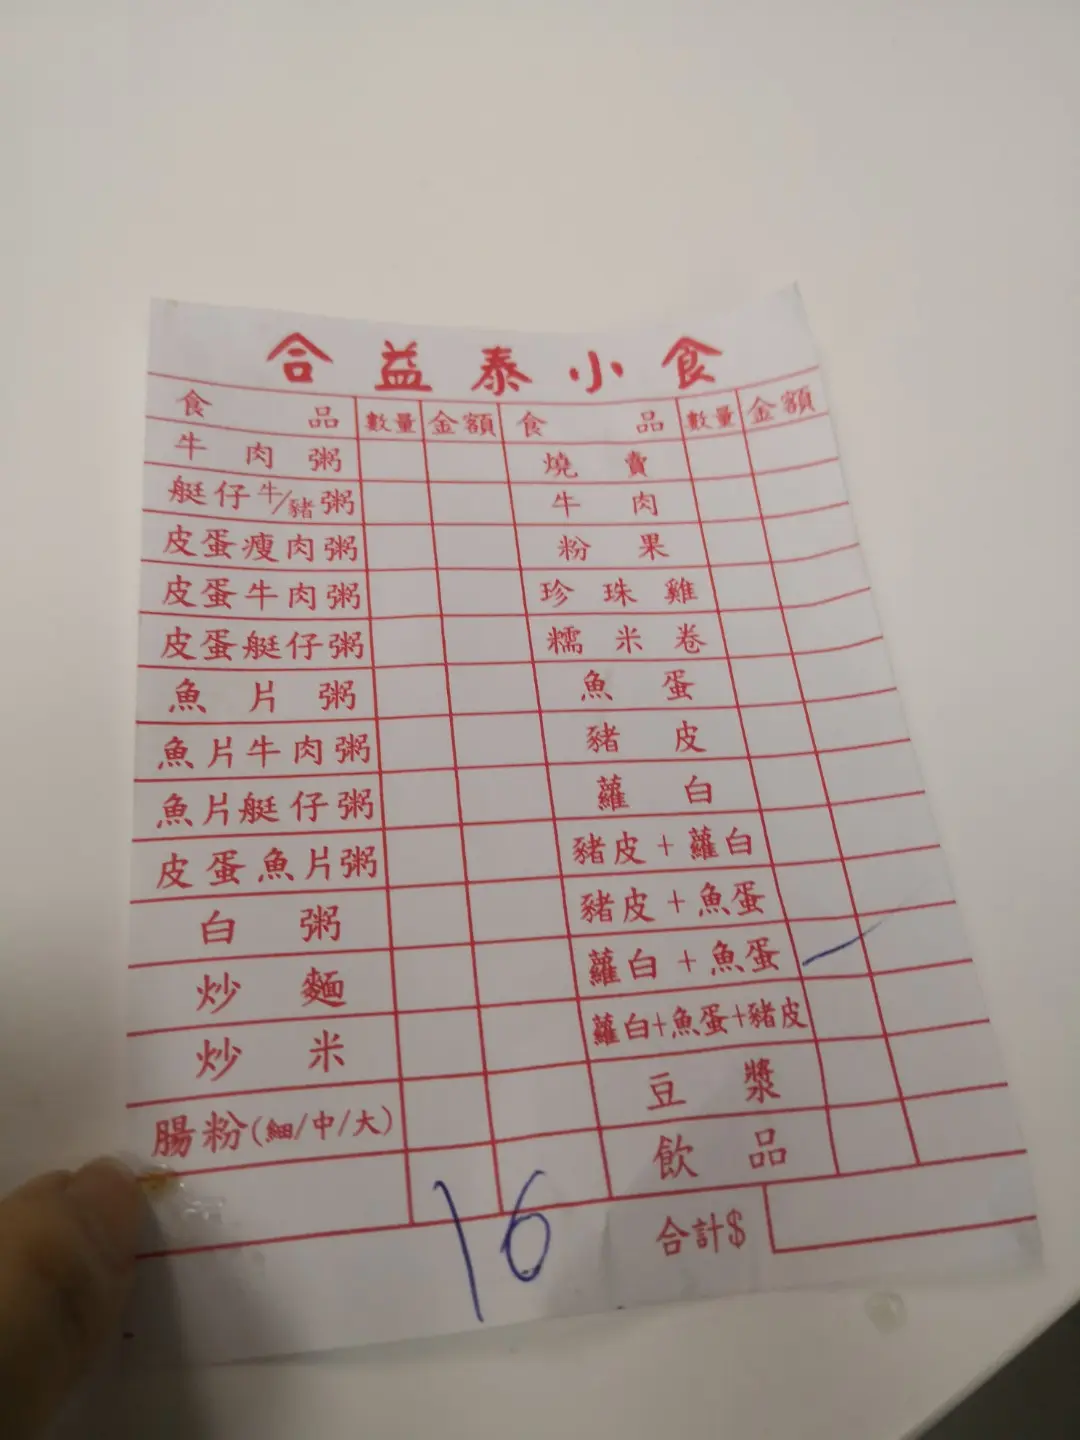 合益泰小食
食品 數量 金額 食品 數量 金額
牛肉粥 燒賣
艇仔牛/豬粥 牛肉
皮蛋瘦肉粥 粉果
皮蛋牛肉粥 珍珠雞
皮蛋艇仔粥 糯米卷
魚片粥 魚蛋
魚片牛肉粥 豬皮
魚片艇仔粥 蘿白
皮蛋魚片粥 豬皮+蘿白
白粥 豬皮+魚蛋
炒麵 蘿白+魚蛋
炒米 蘿白+魚蛋+豬皮
腸粉(細/中/大) 豆漿
飲品
16
合計$